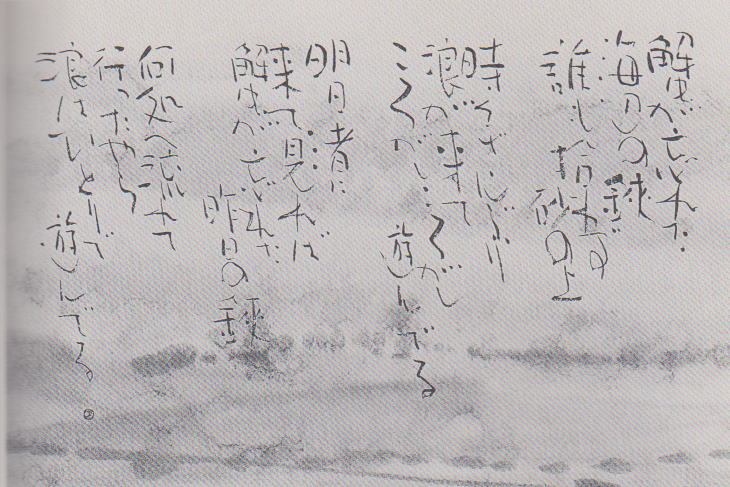 蟹が忘れた
海辺の毬
誰も拾はず
砂の上
時々ざんぶり
浪が来て
ころがしころがし
遊んでる
明日渚に
来て見れば
蟹が忘れた
昨日の毬
何処へ流れて
行ったやら
浪はひとりで
遊んでる。